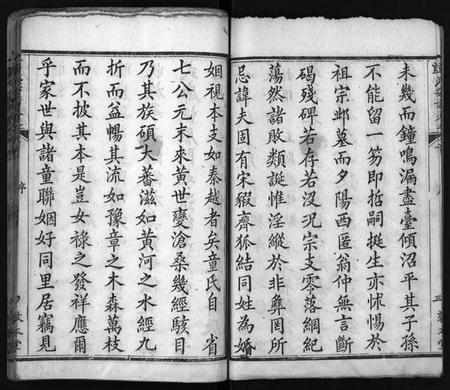 未幾而鐘鳴漏盡臺傾沼平其子孫
不能留一笏即哲嗣挺生亦怵惕於
祖宗邺墓而夕陽西匿翁仲無言斷
碣殘碑若存若沒况宗支零落綱紀
蕩然諸敗類誕惟淫縱於非彝罔所
忌諱夫固有宋猳齊狐結同姓為婚
姻視本支如秦越者矣童氏自 省
七公元末來黃世變滄桑幾經駭目
乃其族碩大蕃滋如黃河之水經九
折而益暢其流如豫章之木森萬枝
而不披其本是豈女祿之發祥應爾
乎家世與諸童聯姻好同里居竊見
序